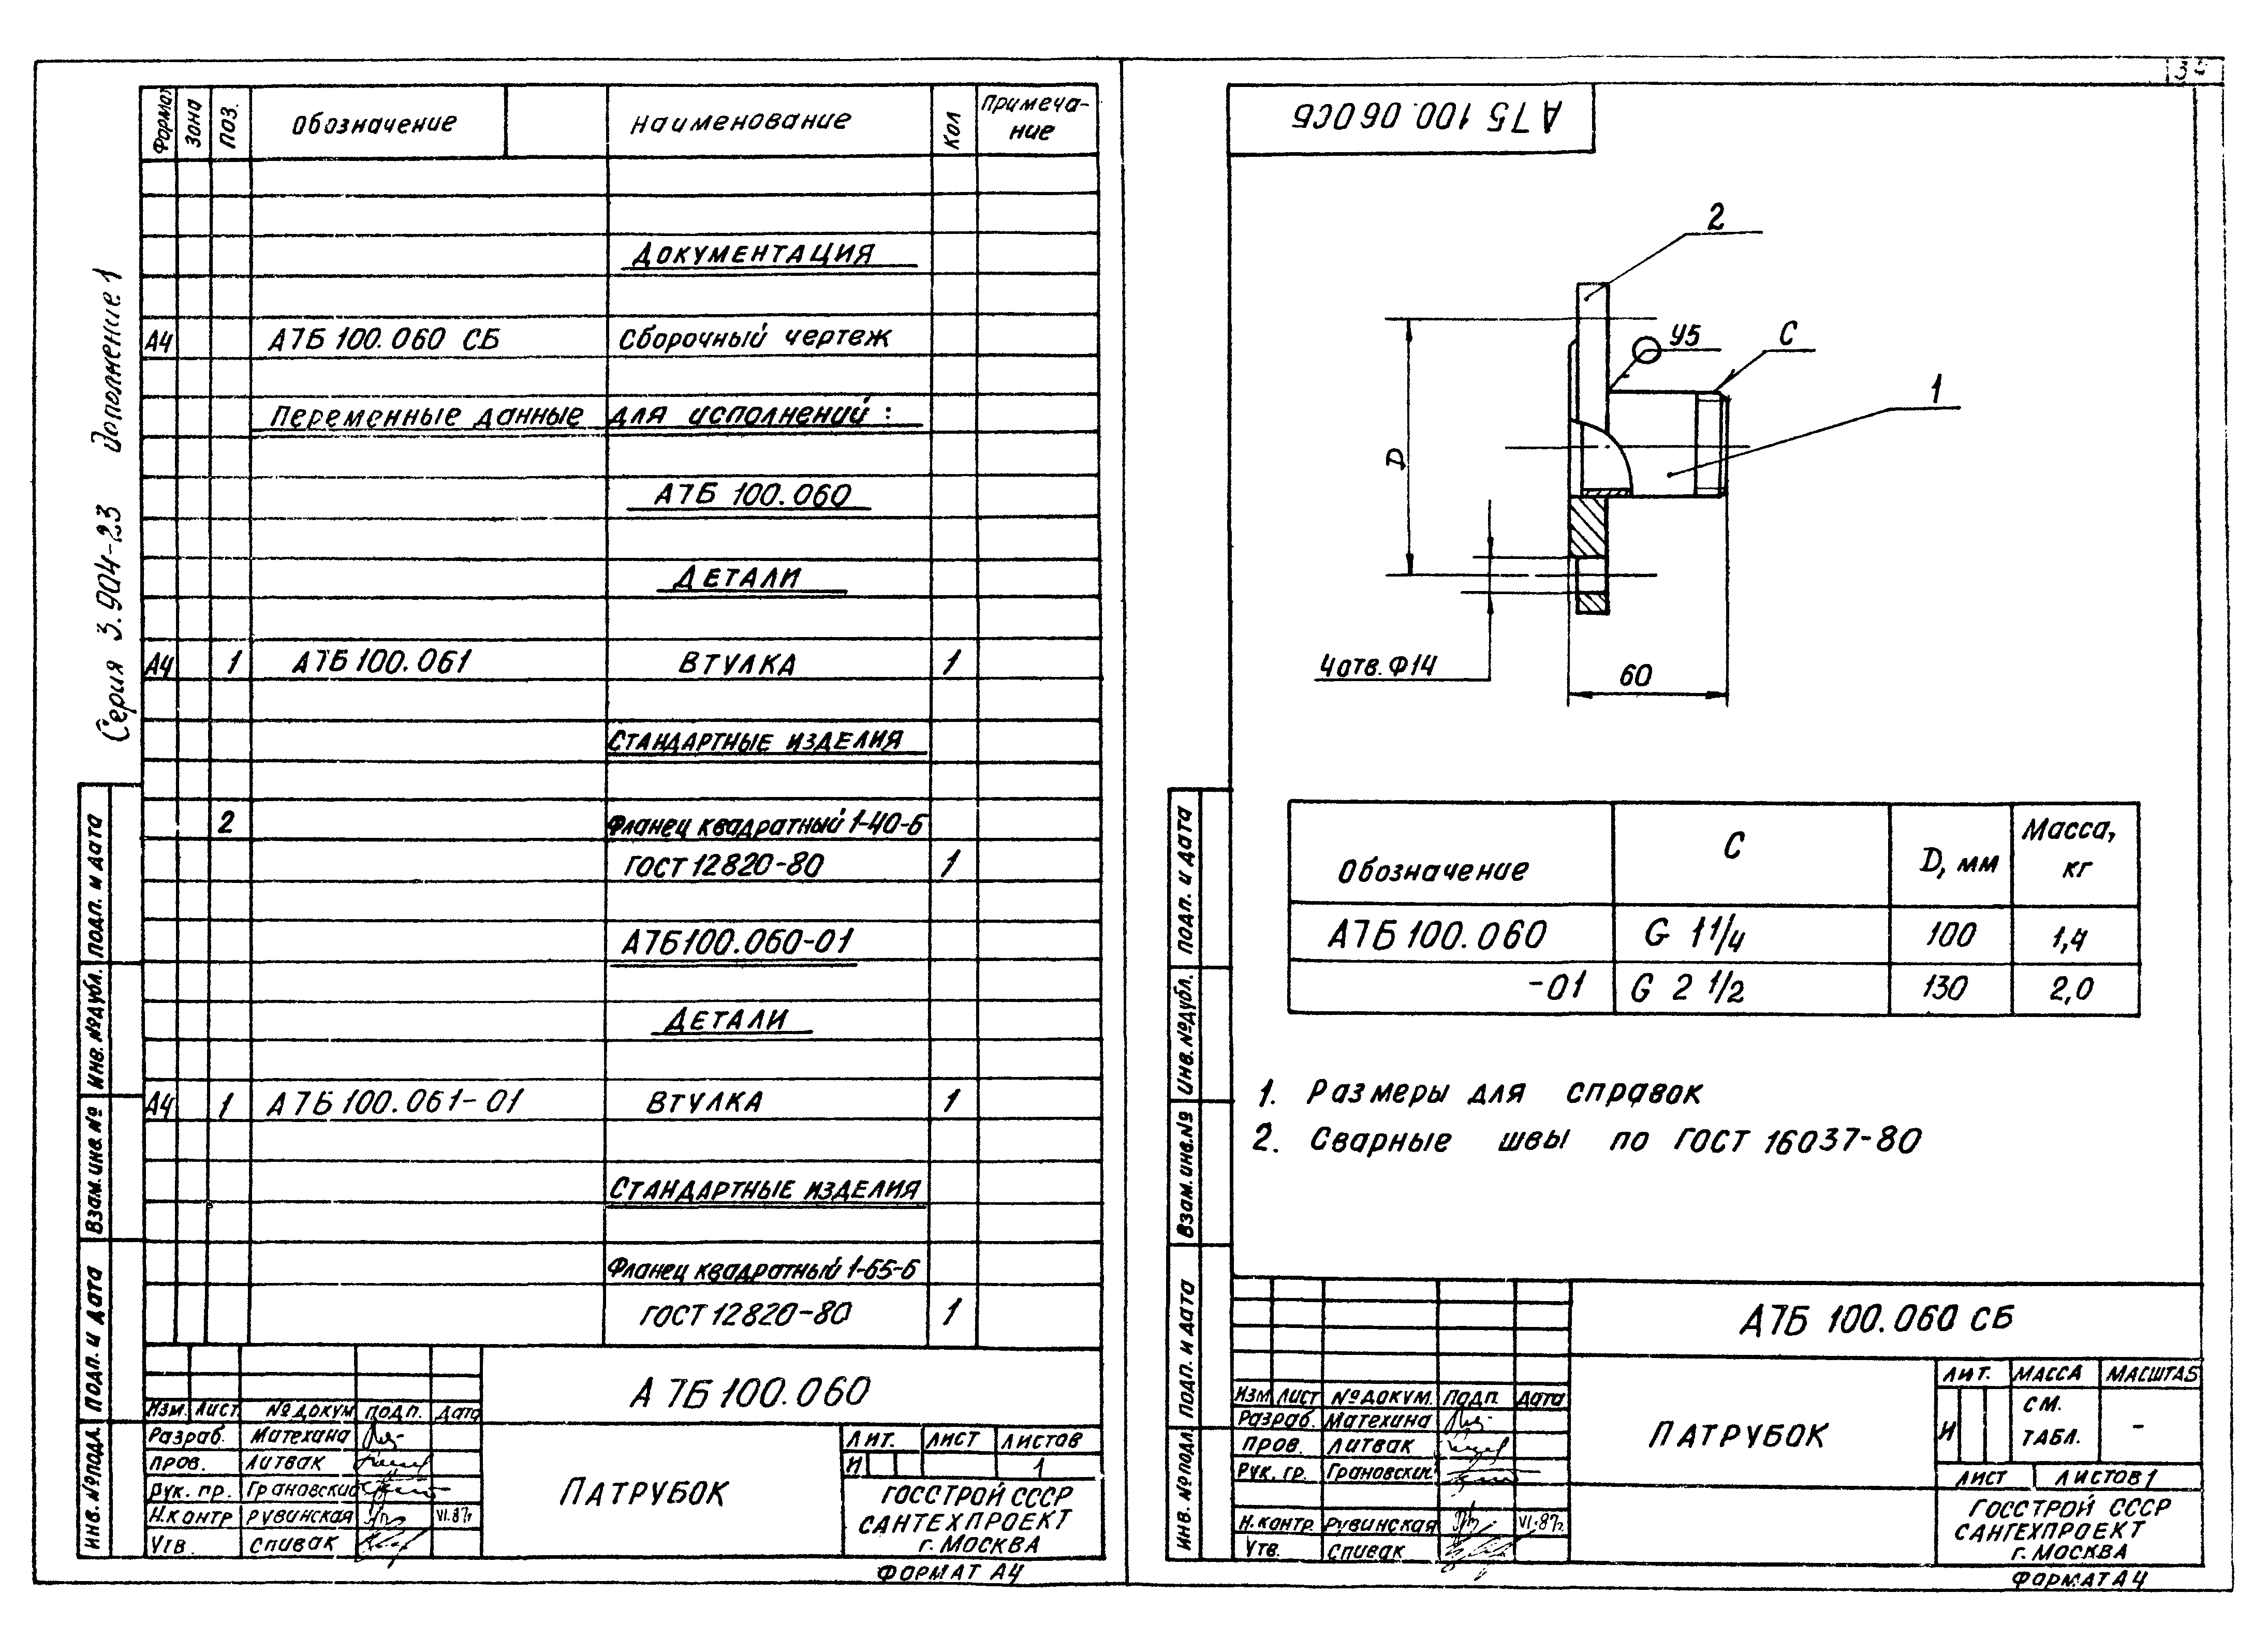 Серия 3.904-23 Дополнение 1
Формат Зона Поз. Обозначение Наименование Кол Примеча-
ние
Документация
А4 А7Б 100.060 СБ Сборочный чертеж
Переменные данные для исполнений:
А7Б 100.060
Детали
А4 1 А7Б 100.061 Втулка 1
Стандартные изделия
2 Фланец квадратный 1-40-6
ГОСТ 12820-80 1
А7Б100.060-01
Детали
А4 1 А7Б 100.061-01 Втулка 1
Стандартные изделия
Фланец квадратный 1-65-6
ГОСТ 12820-80 1
Инв. № подл. Подп. и дата Взам. инв. № Инв. № дубл. Подп. и дата
А 7Б 100.060
Изм. Лист № докум подп. Дата
Разраб. Матехина
Пров. Литвак
Рук. гр. Грановский
Н.контр Рувинская VI.87г
Утв. Спивак
Патрубок
Лит. Лист Листов
И 1
ГОССТРОЙ СССР
САНТЕХПРОЕКТ
г. МОСКВА
ФОРМАТ А4
А7Б 100.060СБ
2
У5
С
1
D
4 отв. Ф14
60
Обозначение С D, мм Масса,
кг
А7Б 100.060 G 1 1/4 100 1,4
-01 G 2 1/2 130 2,0
1. Размеры для справок
2. Сварные швы по ГОСТ 16037-80
Инв. № подл. Подп. и дата Взам. инв. № Инв. № дубл. Подп. и дата
А7Б 100.060 СБ
Изм Лист № докум. Подп. Дата
Разраб. Матехина
Пров. Литвак
Рук. гр. Грановский
Н.контр. Рувинская VI.87г.
Утв. Спивак
Патрубок
Лит. Масса Масштаб
И см.
табл. -
Лист Листов 1
ГОССТРОЙ СССР
САНТЕХПРОЕКТ
г. МОСКВА
ФОРМАТ А4